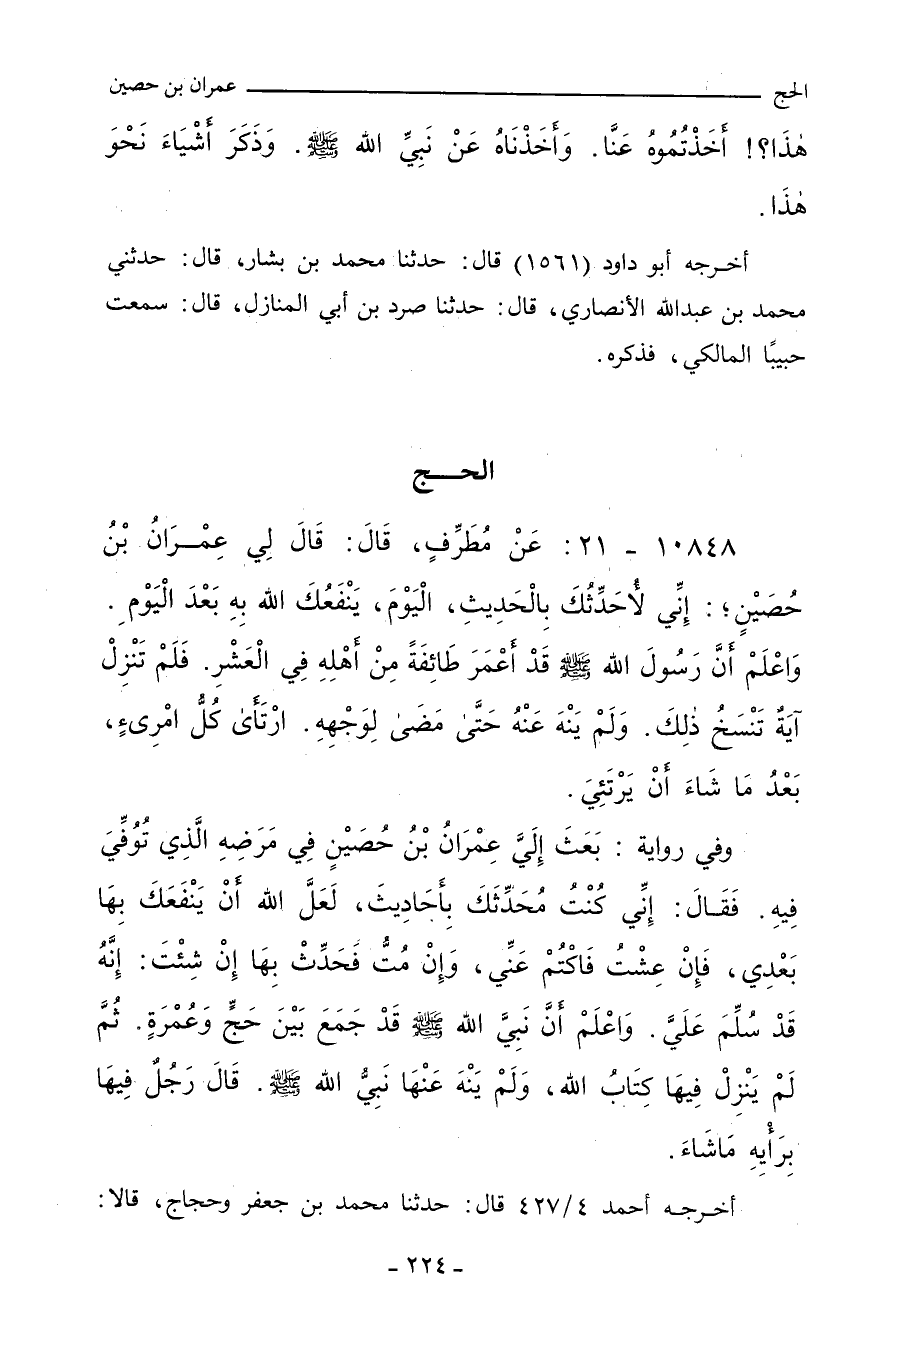 الحج ــــــــــــــــــــ عمران بن حصين
هٰذَا؟! أَخَذْتُمُوهُ عَنَّا. وَأَخَذْنَاهُ عَنْ نَبِيِّ الله ﷺ. وَذَكَرَ أَشْيَاءَ نَحْوَ
هٰذَا.
أخـرجه أبو داود (١٥٦١) قال: حدثنا محمد بن بشار، قال: حدثني
محمد بن عبدالله الأنصاري، قال: حدثنا صرد بن أبي المنازل، قال: سمعت
حبيبًا المالكي، فذكره.
الحـــج
١٠٨٤٨ - ٢١: عَنْ مُطَرِّفٍ، قَالَ: قَالَ لِي عِمْـرَانُ بْنُ
حُصَيْنٍ؛: إِنِّي لأُحَدِّثُكَ بِالْحَدِيثِ، الْيَوْمَ، يَنْفَعُكَ الله بِهِ بَعْدَ الْيَوْمِ.
وَاعْلَمْ أَنَّ رَسُولَ الله ﷺ قَدْ أَعْمَرَ طَائِفَةً مِنْ أَهْلِهِ فِي الْعَشْرِ. فَلَمْ تَنْزِلْ
آيَةٌ تَنْسَخُ ذٰلِكَ. وَلَمْ يَنْهَ عَنْهُ حَتَّىٰ مَضَىٰ لِوَجْهِهِ. ارْتَأَىٰ كُلُّ امْرِىءٍ،
بَعْدُ مَا شَاءَ أَنْ يَرْتَئِيَ.
وفي رواية : بَعَثَ إِلَيَّ عِمْرَانُ بْنُ حُصَيْنٍ فِي مَرَضِهِ الَّذِي تُوُفِّيَ
فِيهِ. فَقَـالَ: إِنِّي كُنْتُ مُحَدِّثَكَ بِأَحَادِيثَ، لَعَلَّ الله أَنْ يَنْفَعَكَ بِهَا
بَعْدِي، فَإِنْ عِشْتُ فَاكْتُمْ عَنِّي، وَإِنْ مُتُّ فَحَدِّثْ بِهَا إِنْ شِئْتَ: إِنَّهُ
قَدْ سُلِّمَ عَلَيَّ. وَاعْلَمْ أَنَّ نَبِيَّ الله ﷺ قَدْ جَمَعَ بَيْنَ حَجٍّ وَعُمْرَةٍ. ثُمَّ
لَمْ يَنْزِلْ فِيهَا كِتَابُ الله، وَلَمْ يَنْهَ عَنْهَا نَبِيُّ الله ﷺ. قَالَ رَجُلٌ فِيهَا
بِرَأْيِهِ مَاشَاءَ.
أخـرجـه أحمد ٤٢٧/٤ قال: حدثنا محمد بن جعفر وحجاج، قالا:
- ٢٢٤ -